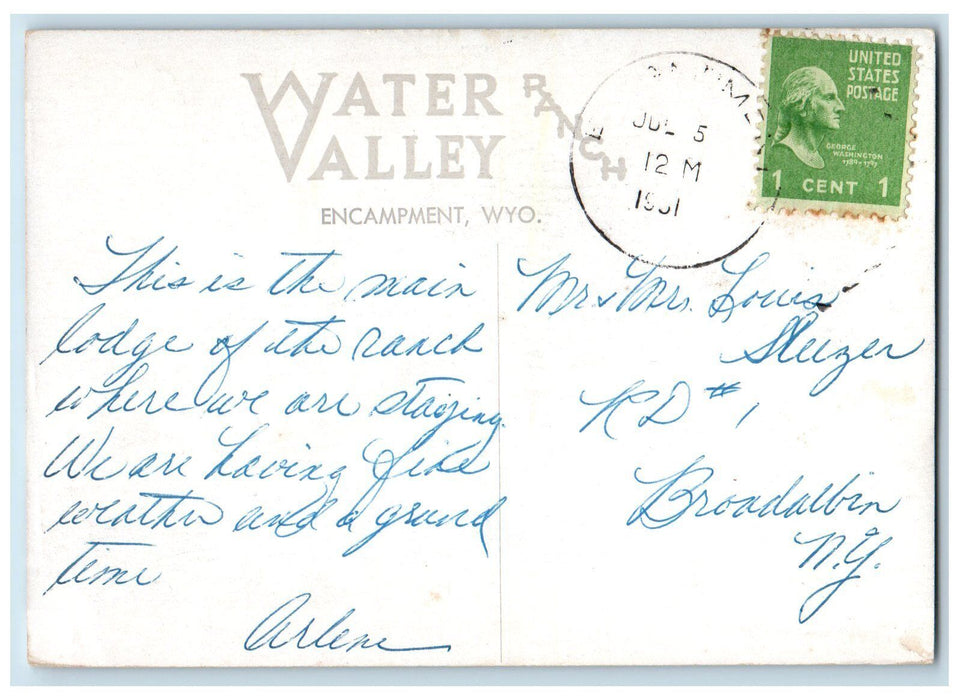 WATER VALLEY RANCH
ENCAMPMENT, WYO.
JUL 5
12 M
1951
UNITED
STATES
POSTAGE
GEORGE
WASHINGTON
1789-1797
1 CENT 1
This is the main
lodge of the ranch
where we are staying.
We are having fine
weather and a grand
time
Arlene
Mr & Mrs. Louis
Sleezer
RD #1
Broadalbin
N.Y.